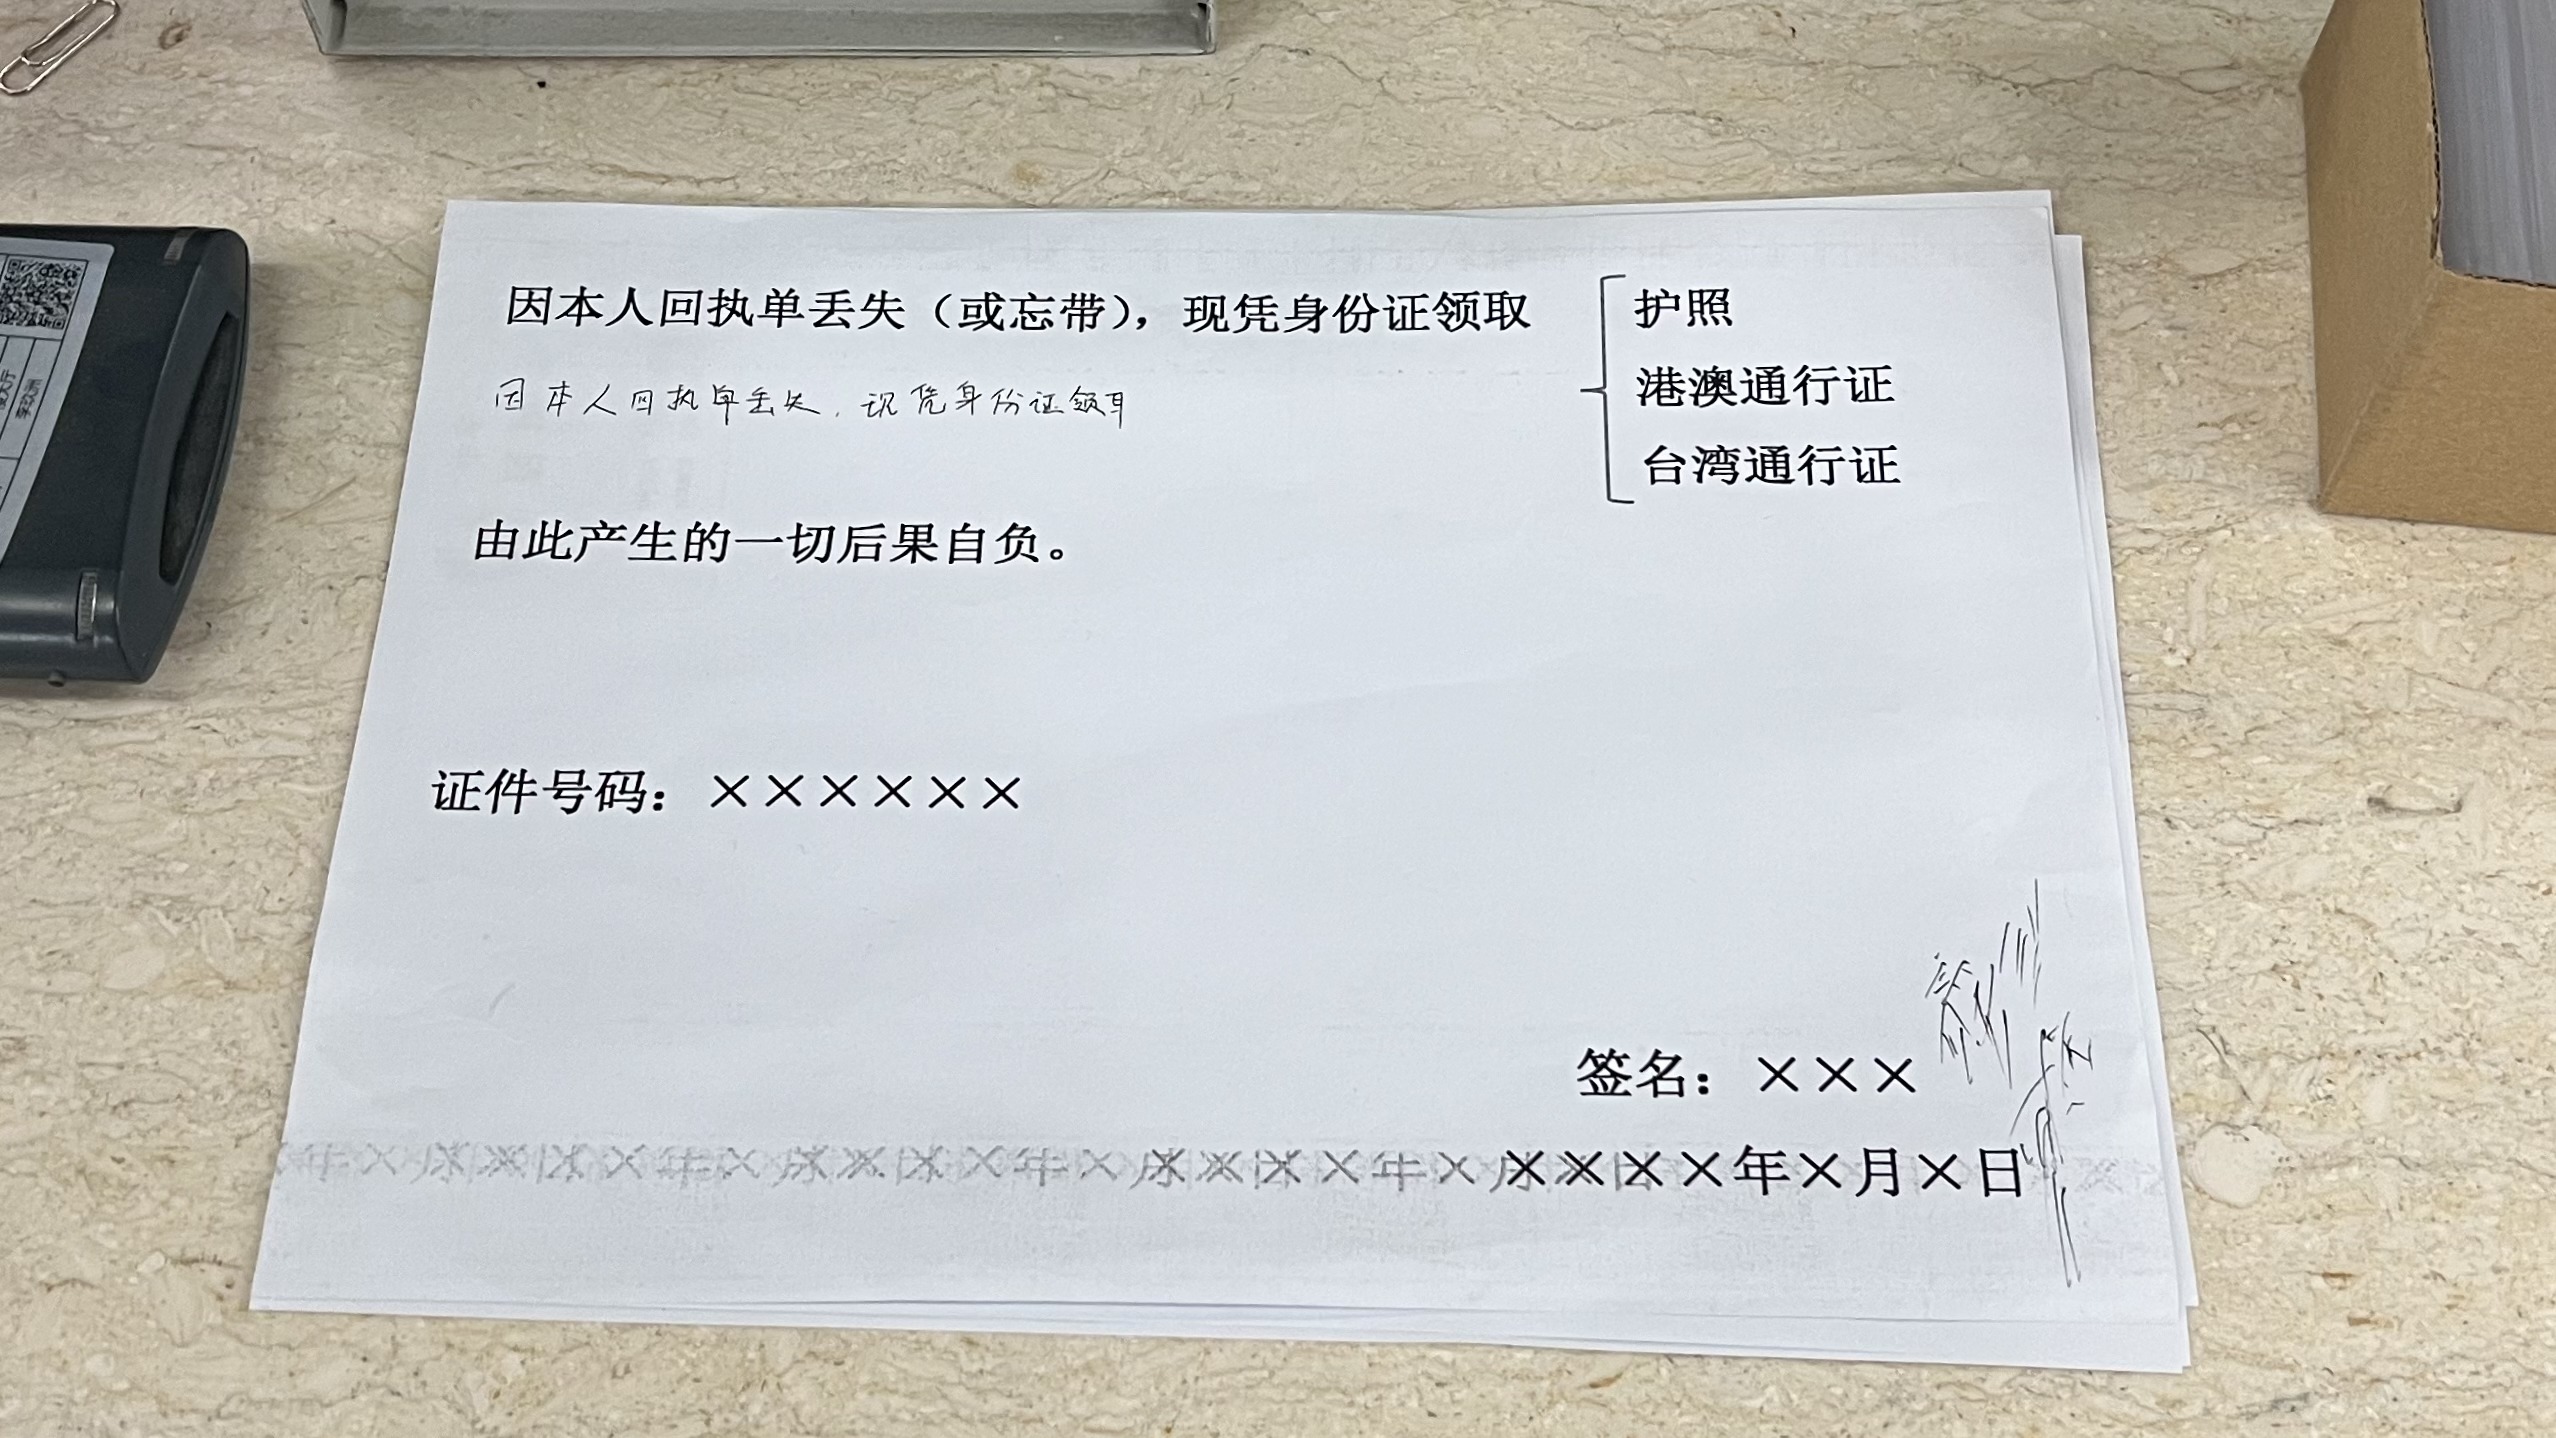 因本人回执单丢失（或忘带），现凭身份证领取
护照
港澳通行证
台湾通行证
因本人回执单丢失，现凭身份证领取
由此产生的一切后果自负。
证件号码：××××××
签名：×××
××××年×月×日